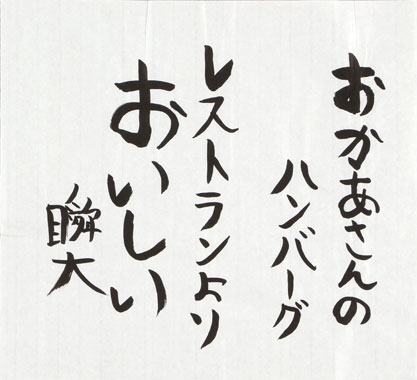 おかあさんの
ハンバーグ
レストランより
おいしい
瞬大